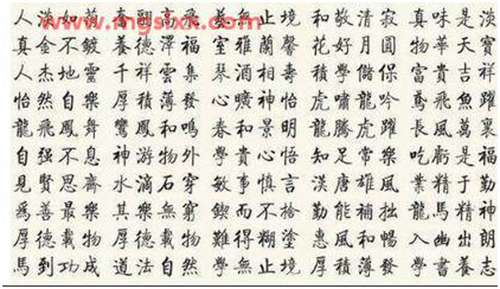 人淡如菊 奮翮高飛 藝無止境 和敬清寂 真味是淡
真金不鍍 養德澤福 室雅蘭馨 花好月圓 物華天寶
人杰地靈 千祥雲集 琴酒相壽 積學儲 富貴吉祥
怡然自樂 厚積薄發 心曠神怡 虎嘯龍吟 鳶飛魚躍
龍飛鳳舞 鸞鳳和鳴 春和景明 龍騰虎躍 長風萬裏
自强不息 神游物外 和貴心悟 知足常樂 吃虧是福
見賢思齋 水滴石穿 敏事慎言 漢唐雄風 業精于勤
為善最樂 其樂無窮 鍥而不捨 勤能補拙 龍馬精神
厚德載物 難得糊塗 惠風和暢 入幽出朗
馬到功成 道法自然 學無止境 厚積薄發 學書養志